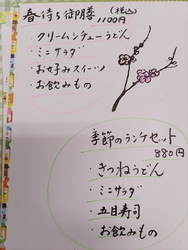 春待ち御膳(税込)
1100円
・クリームシチューうどん
・ミニサラダ
・お好みスイーツ
・お飲みもの
季節のランチセット
880円
・きつねうどん
・ミニサラダ
・五目寿司
・お飲みもの